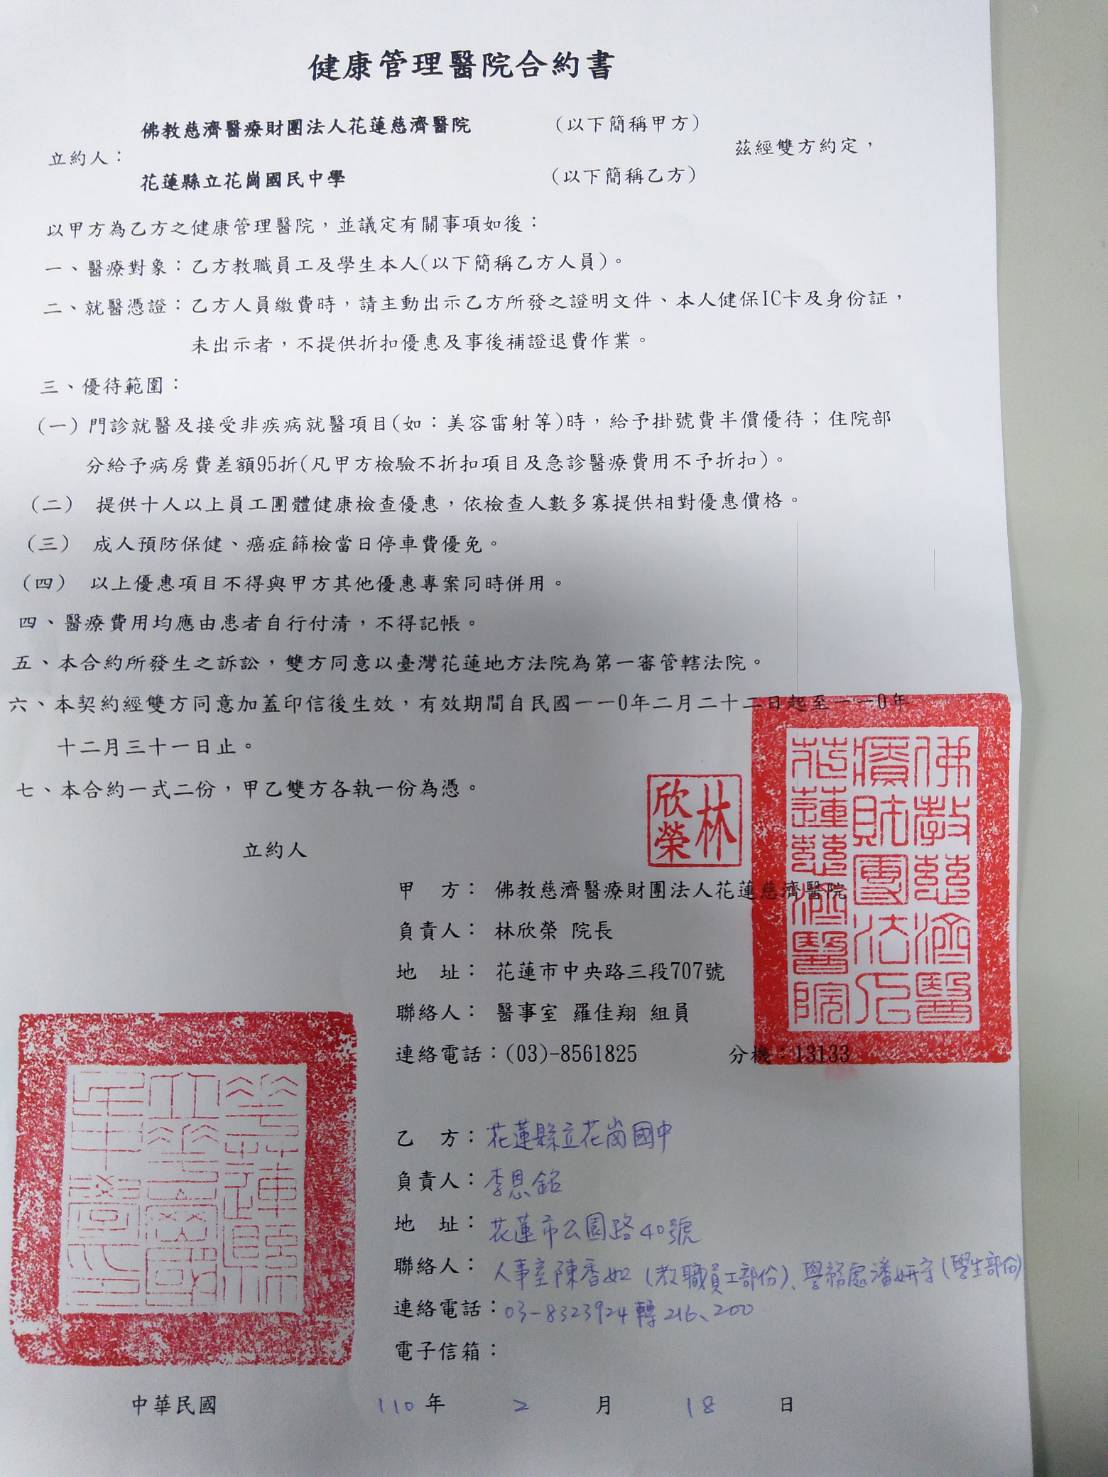 健康管理醫院合約書
佛教慈濟醫療財團法人花蓮慈濟醫院 (以下簡稱甲方)
立約人： 茲經雙方約定，
花蓮縣立花崗國民中學 (以下簡稱乙方)
以甲方為乙方之健康管理醫院，並議定有關事項如後：
一、醫療對象：乙方教職員工及學生本人(以下簡稱乙方人員)。
二、就醫憑證：乙方人員繳費時，請主動出示乙方所發之證明文件、本人健保IC卡及身份証，
未出示者，不提供折扣優惠及事後補證退費作業。
三、優待範圍：
(一)門診就醫及接受非疾病就醫項目(如：美容雷射等)時，給予掛號費半價優待；住院部
分給予病房費差額95折(凡甲方檢驗不折扣項目及急診醫療費用不予折扣)。
(二) 提供十人以上員工團體健康檢查優惠，依檢查人數多寡提供相對優惠價格。
(三) 成人預防保健、癌症篩檢當日停車費優免。
(四) 以上優惠項目不得與甲方其他優惠專案同時併用。
四、醫療費用均應由患者自行付清，不得記帳。
五、本合約所發生之訴訟，雙方同意以臺灣花蓮地方法院為第一審管轄法院。
六、本契約經雙方同意加蓋印信後生效，有效期間自民國一一0年二月二十二日起至一一0年
十二月三十一日止。
七、本合約一式二份，甲乙雙方各執一份為憑。
林欣榮
佛教慈濟醫療財團法人花蓮慈濟醫院
立約人
甲 方： 佛教慈濟醫療財團法人花蓮慈濟醫院
負責人： 林欣榮 院長
地 址： 花蓮市中央路三段707號
聯絡人： 醫事室 羅佳翔 組員
連絡電話：(03)-8561825 分機：13133
乙 方：花蓮縣立花崗國中
負責人：李恩銘
地 址：花蓮市公園路40號
聯絡人：人事室陳香如(教職員工部份)、學務處潘妍守(學生部份)
連絡電話：03-8323924轉216、200
電子信箱：
中華民國 110 年 2 月 18 日